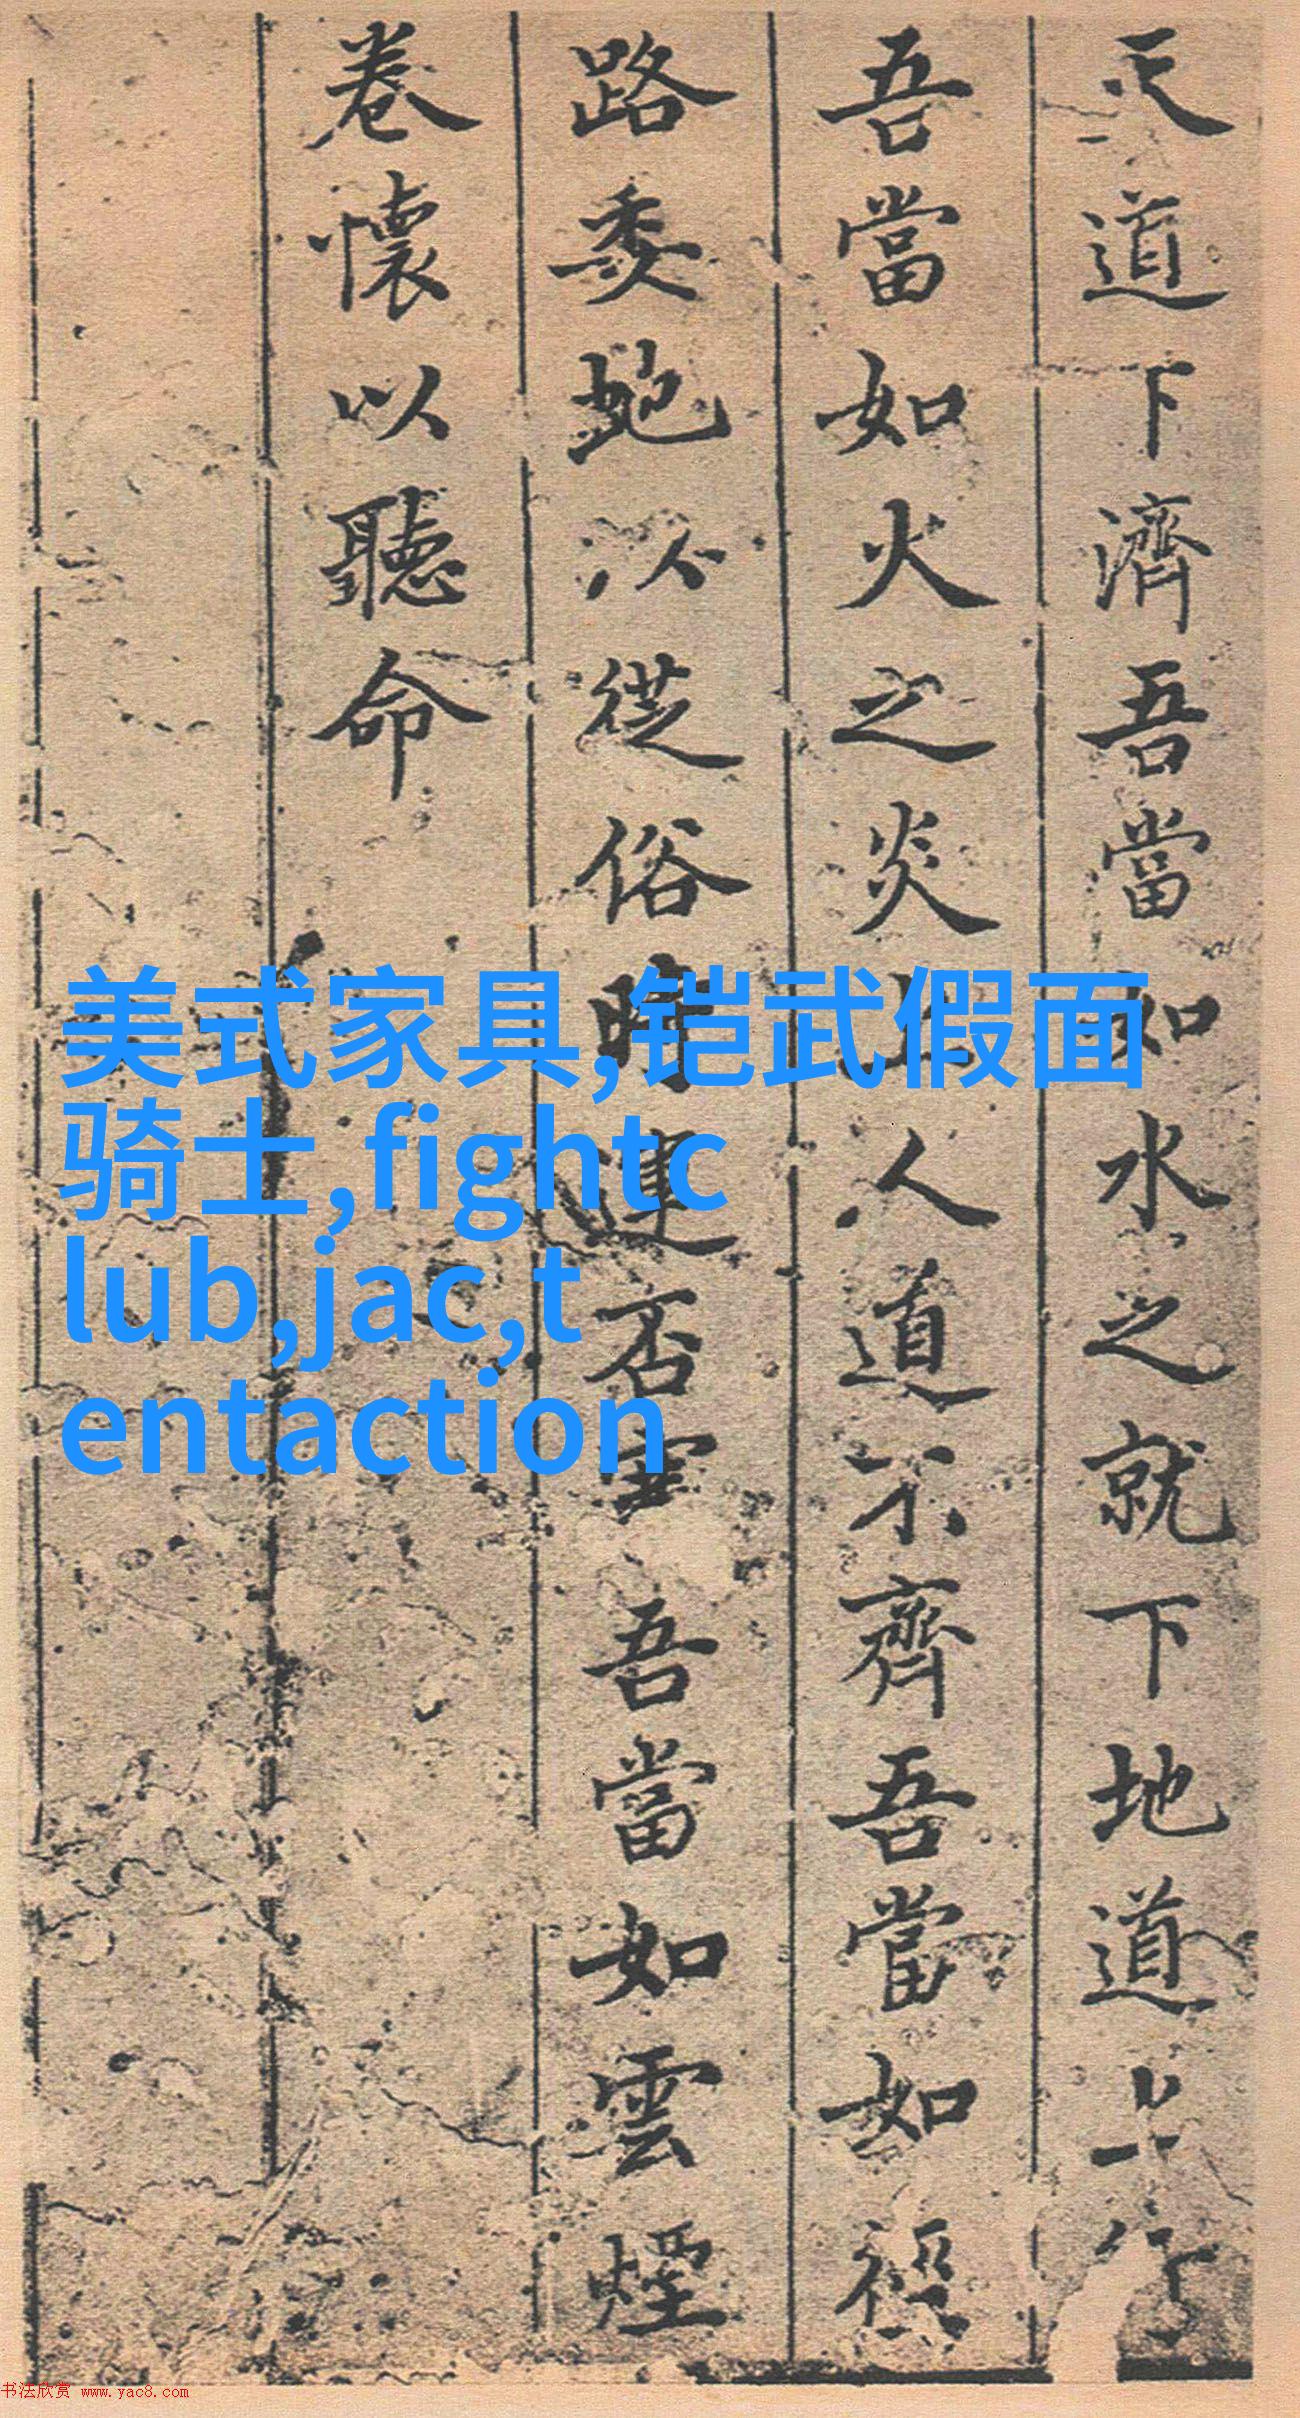 天道下濟吾當如水之就下地道上行
吾當如火之炎上人道不齊吾當如
路委蛇以從俗時運否塞吾當如雲煙
卷懷以聽命
美式家具,铠武假面
骑士,fightc
lub,jac,t
entaction
书法欣赏 www.yac8.com